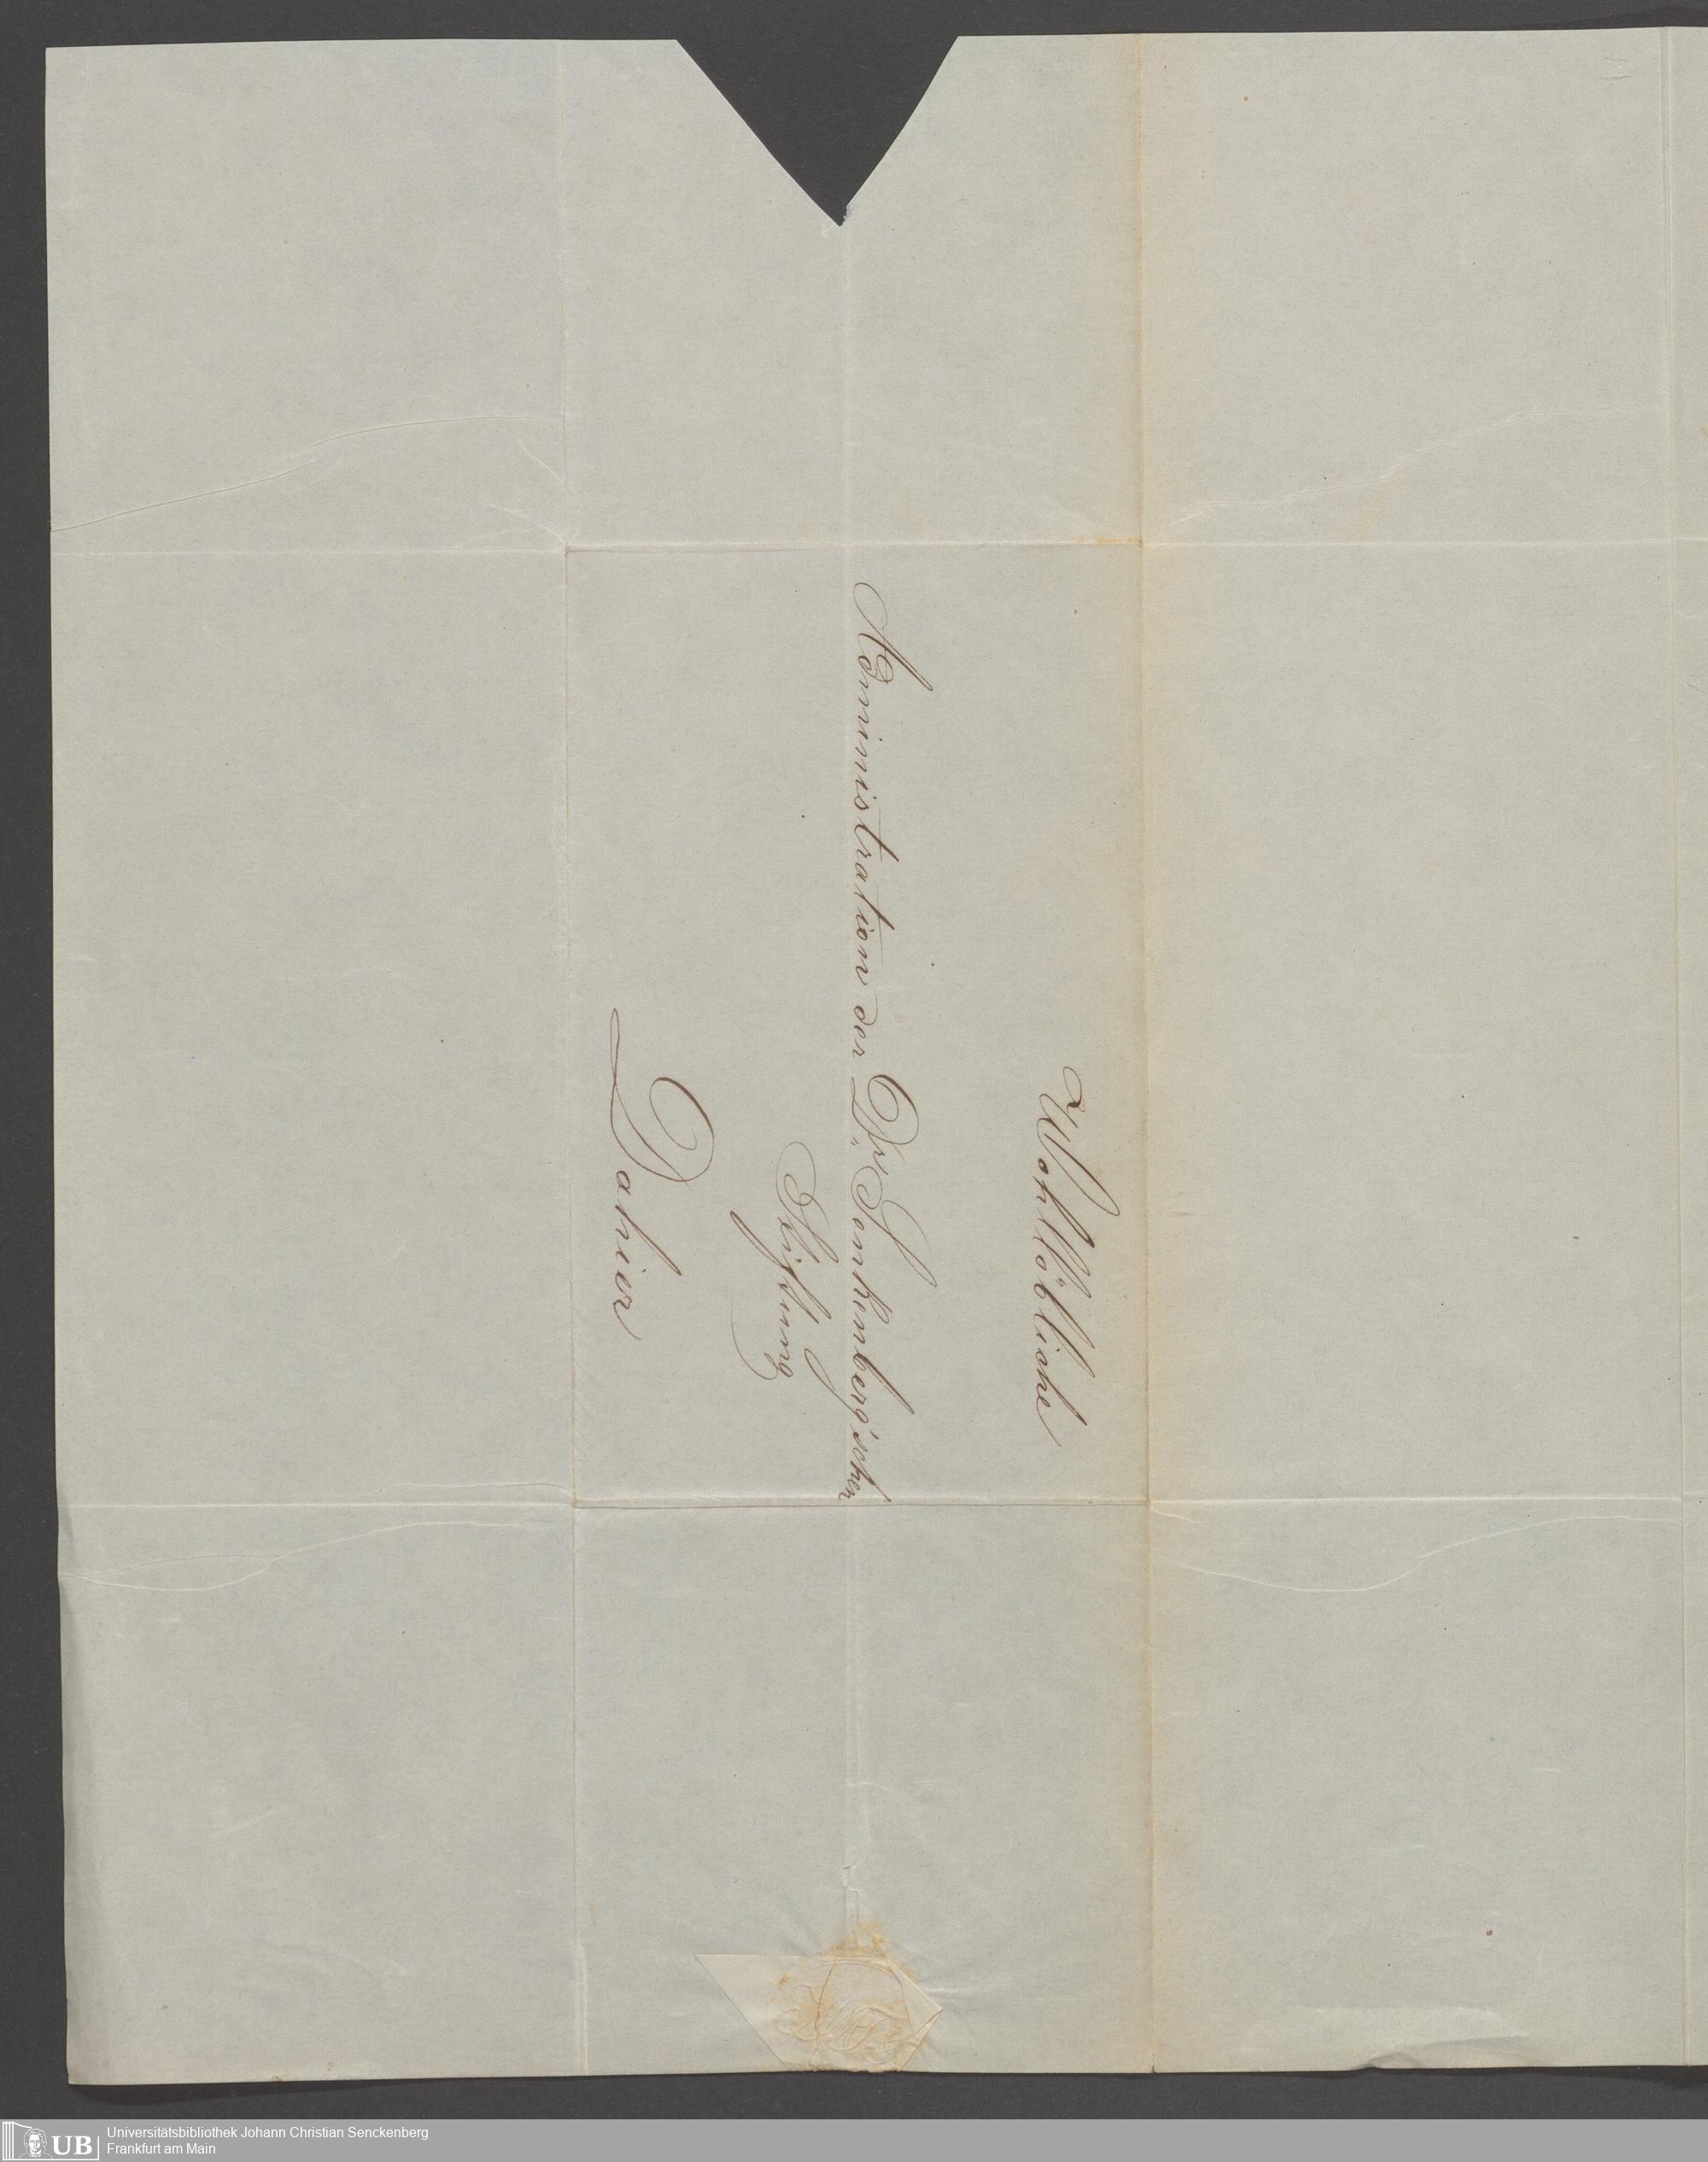 Wohllöbliche
Administration der Dr. Senkenberg'schen
Stiftung
Dahier
Universitätsbibliothek Johann Christian Senckenberg
Frankfurt am Main
UB